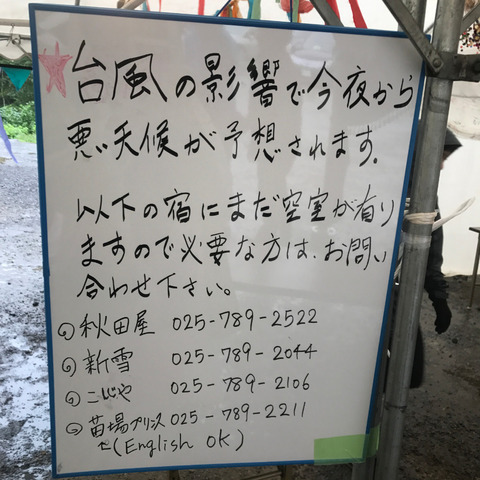 台風の影響で今夜から
悪天候が予想されます.
以下の宿にまだ空室が有り
ますので必要な方は、お問い
合わせ下さい。
秋田屋 025-789-2522
新雪 025-789-2044
こじや 025-789-2106
苗場プリンス 025-789-2211
(English OK)